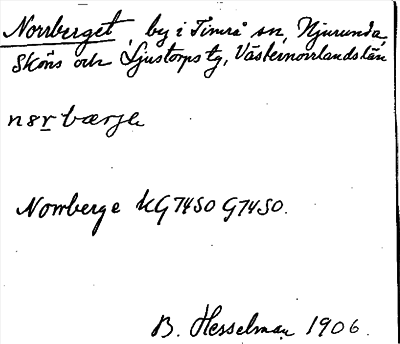 Norrberget, by i Timrå sn, Njurunda,
Sköns och Ljustorps tg, Västernorrlands län
nɷrbærjε
Norrberge KG7450 G7450.
B. Hesselman 1906.